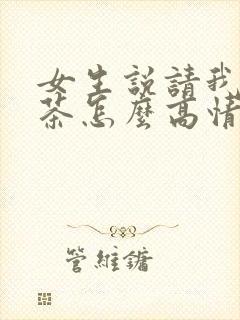 女生説請我
茶怎麼高情
管維鏞